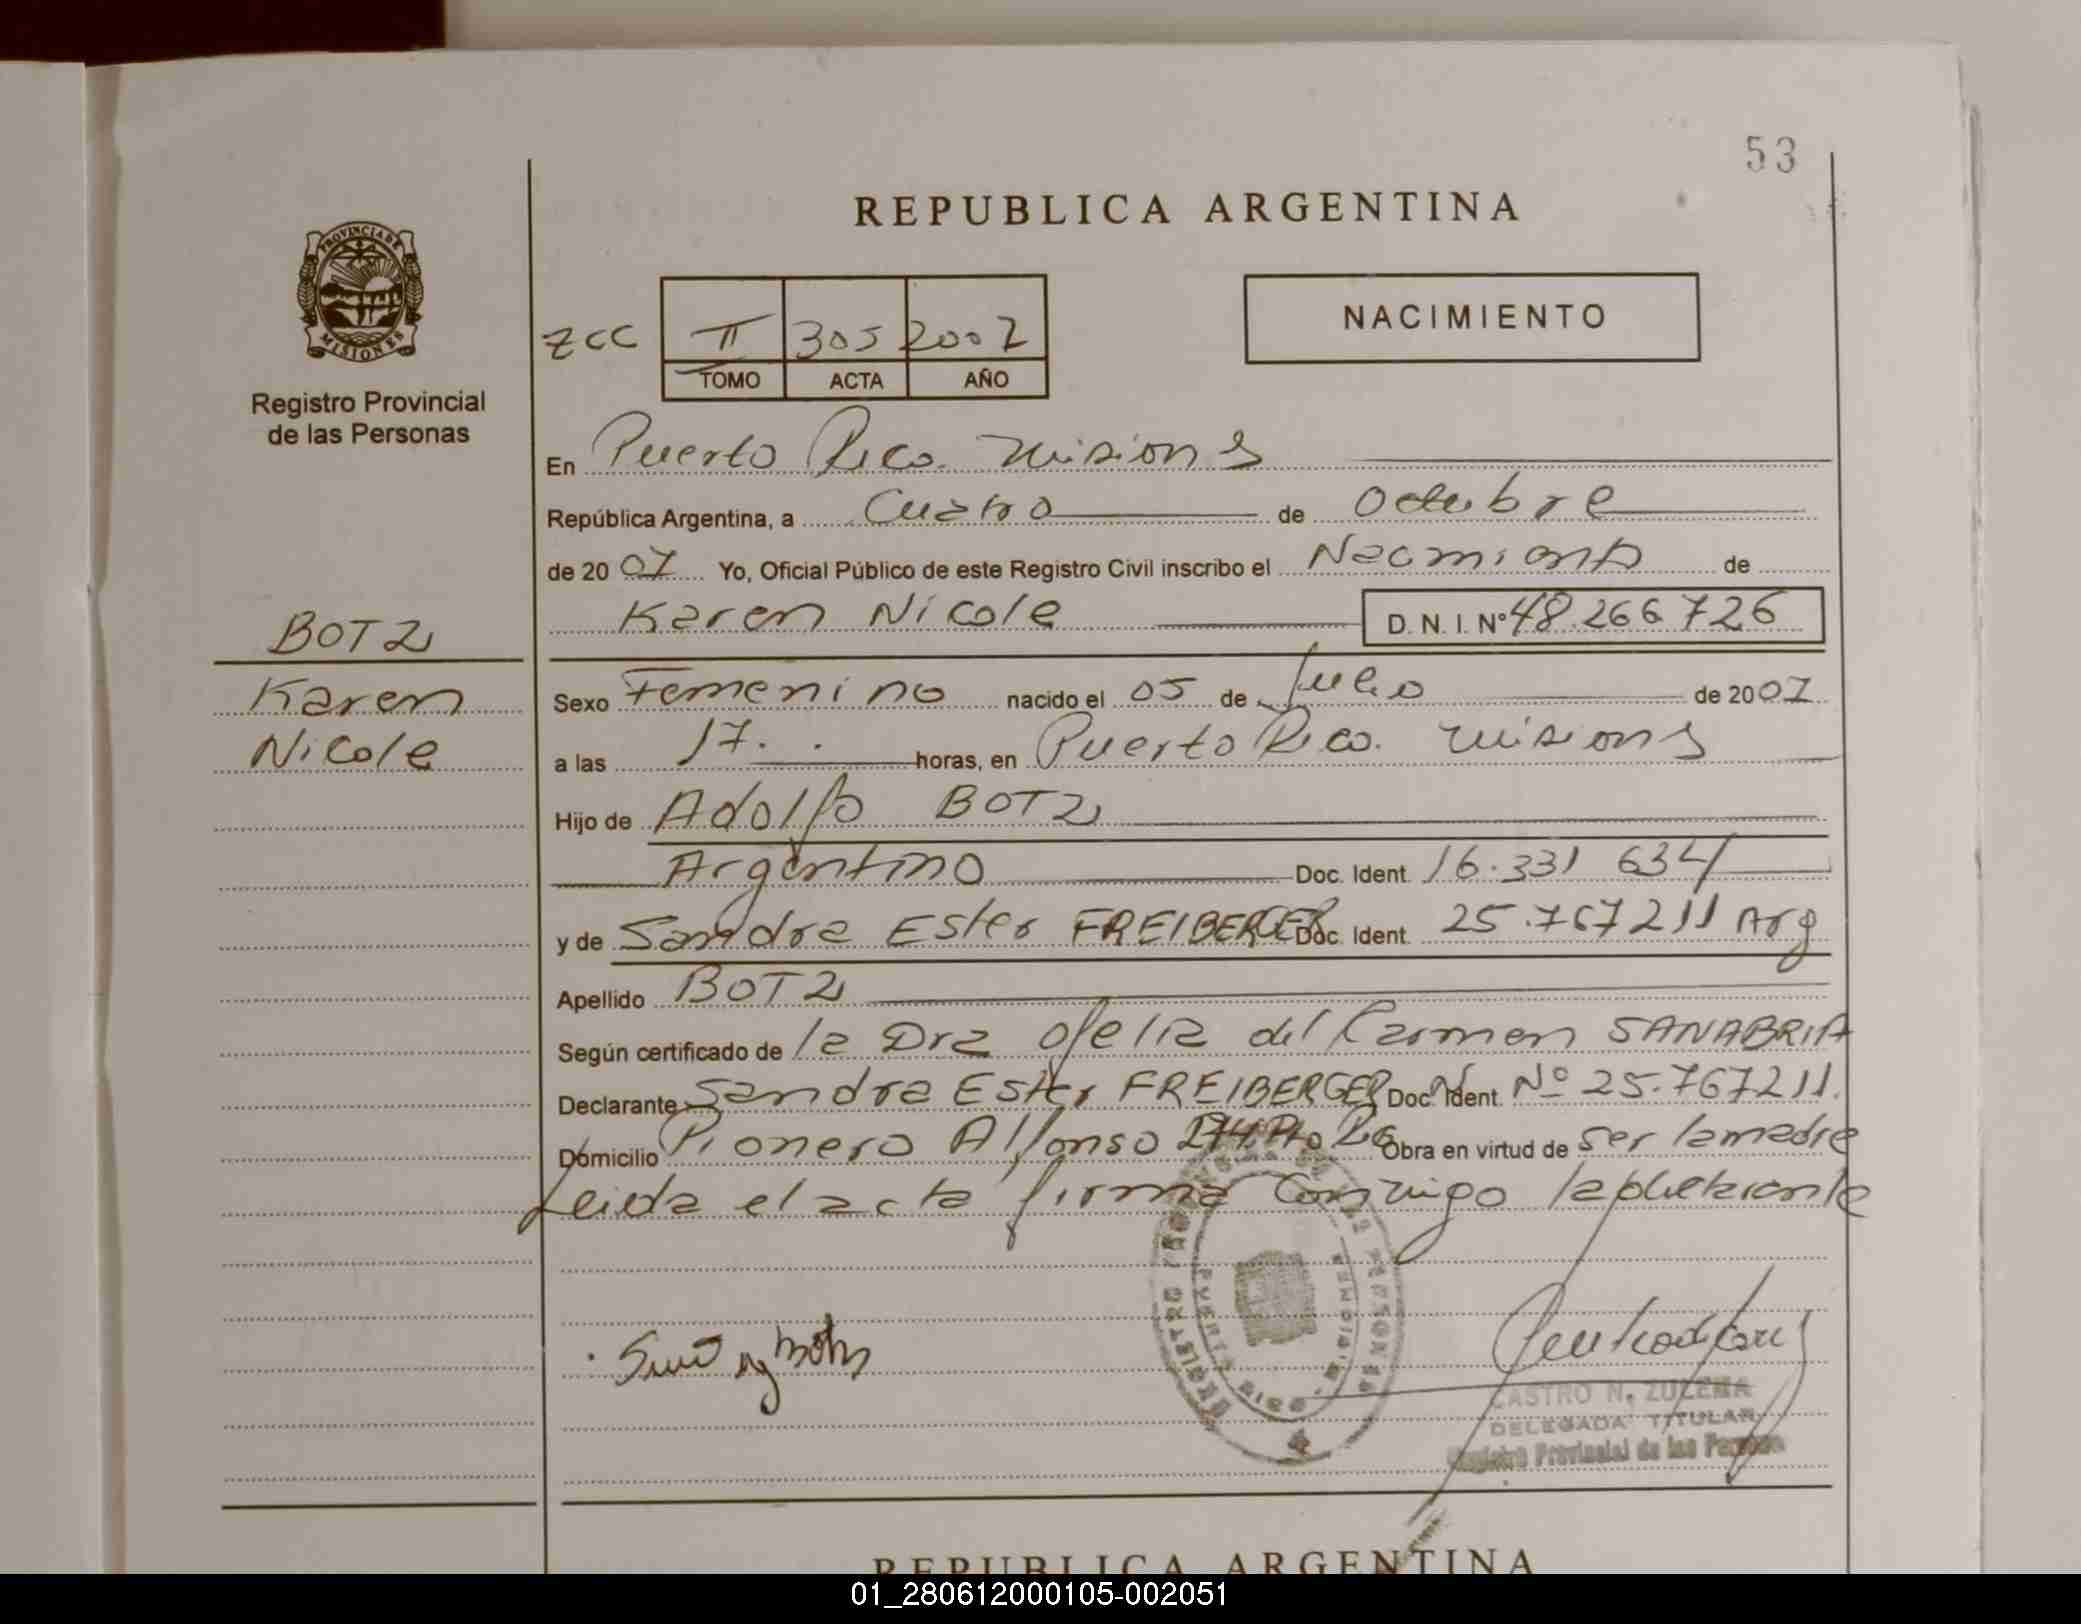 53
REPUBLICA ARGENTINA
PROVINCIA DE MISIONES
Registro Provincial
de las Personas
NACIMIENTO
ZCC II 305 2007
TOMO ACTA AÑO
En Puerto Rico. Misiones
República Argentina, a Cuatro de Octubre
de 2007 Yo, Oficial Público de este Registro Civil inscribo el Nacimiento de
Karen Nicole D. N. I. Nº 48.266.726
BOTZ
Karen
Nicole
Sexo Femenino nacido el 05 de Julio de 2007
a las 17. horas, en Puerto Rico. Misiones
Hijo de Adolfo BOTZ
Argentino Doc. Ident. 16.331 634
y de Sandra Ester FREIBERGER Doc. Ident. 25.767211 Arg
Apellido BOTZ
Según certificado de la Dra Ofelia del Carmen SANABRIA
Declarante Sandra Ester FREIBERGER Doc. Ident. Nº 25.767211.
Domicilio Pionero Alfonso 274. Pto Rco Obra en virtud de ser la madre
Leida el acta firma conmigo la declarante
REGISTRO PROVINCIAL DE LAS PERSONAS
PUERTO RICO
CASTRO N. ZULEMA
DELEGADA TITULAR
Registro Provincial de las Personas
REPUBLICA ARGENTINA
01_280612000105-002051